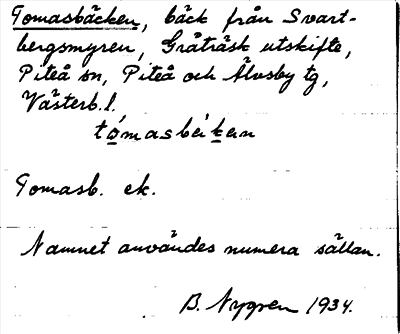 Tomasbäcken, bäck från Svart-
bergsmyren, Gråträsk utskifte,
Piteå sn, Piteå och Älvsby tg,
Västerb.l.
tómasbèkan
Tomasb. ek.
Namnet användes numera sällan.
B. Nygren 1934.